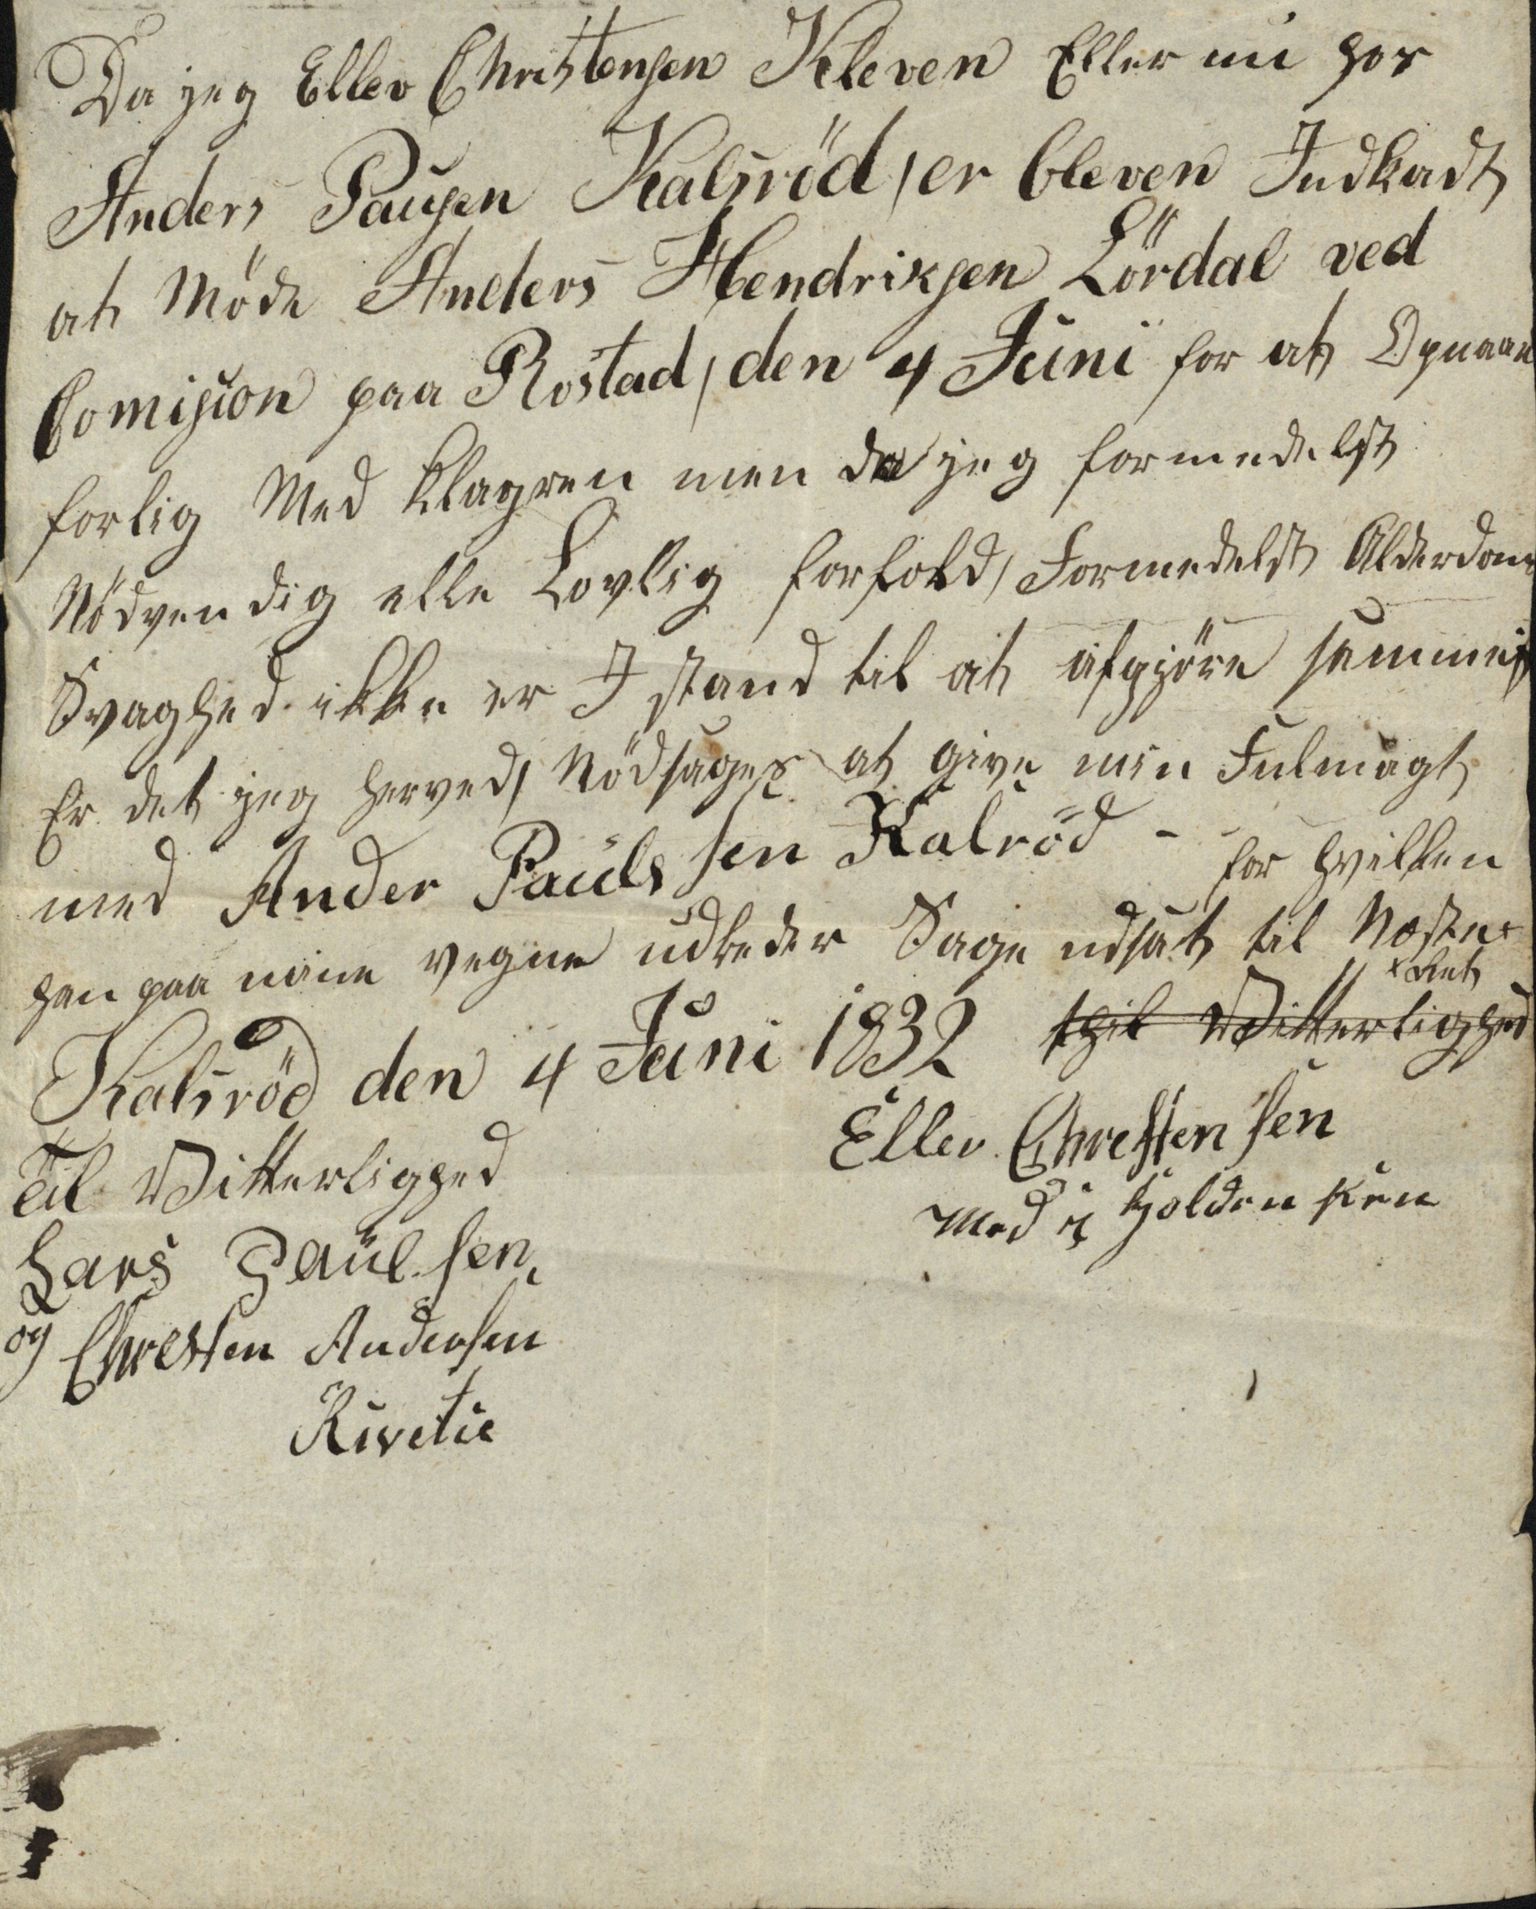 Da jeg Ellev Christensen Kleven Eller nu hos
Anders Pausen Kalsröd, er bleven Indkadt
at Möde Anders Hendriksen Lördal ved
Comision paa Rostad, den 4 Juni for at Opnaae
forlig Med Klagren men da jeg formedelst
Nödvendig elle Lovlig forfold, Formedelst Alderdom
Svaghed ikke er I stand til at afgjöre samme
Er det jeg herved, Nödsages at give min Fulmagt
med Ander Pauls sen Kalröd - for hvilken
han paa mine vegne udbeder Sage udsat til Næste
Ret
Kalsröd den 4 Juni 1832 thil Vitterlighed
Ellev Chresten sen
Med i holden Pen
Til Vitterlighed
Lars Paul sen
og Chresten Andersen